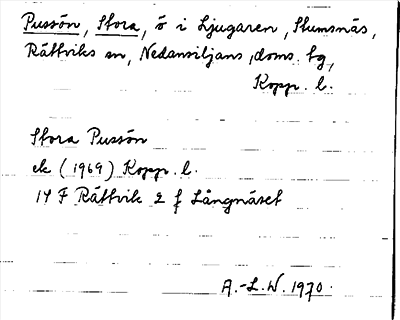 Pussön, Stora, ö i Ljugaren, Stumsnäs,
Rättviks sn, Nedansiljans doms. tg,
Kopp. l.
Stora Pussön
ek (1969) Kopp. l.
14 F Rättvik 2 f Långnäset
A.-L.W. 1970.